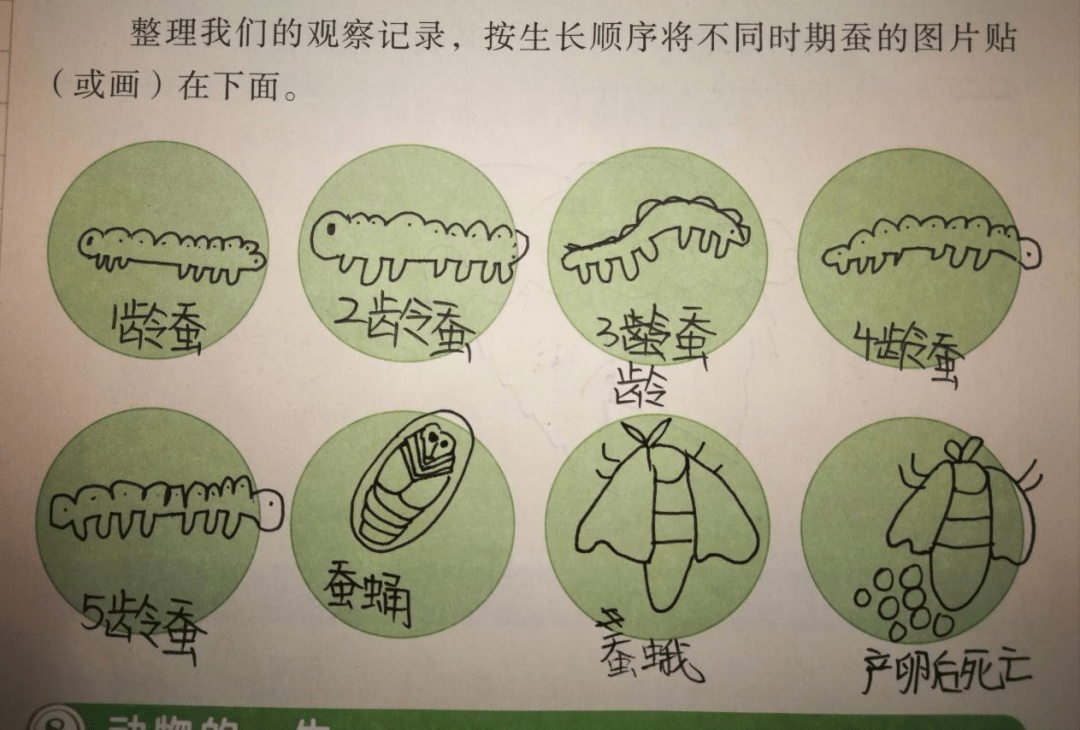 整理我们的观察记录，按生长顺序将不同时期蚕的图片贴
（或画）在下面。
1龄蚕
2龄蚕
3龄蚕
龄
4龄蚕
5龄蚕
蚕蛹
蚕蛾
产卵后死亡
8 动物的一生